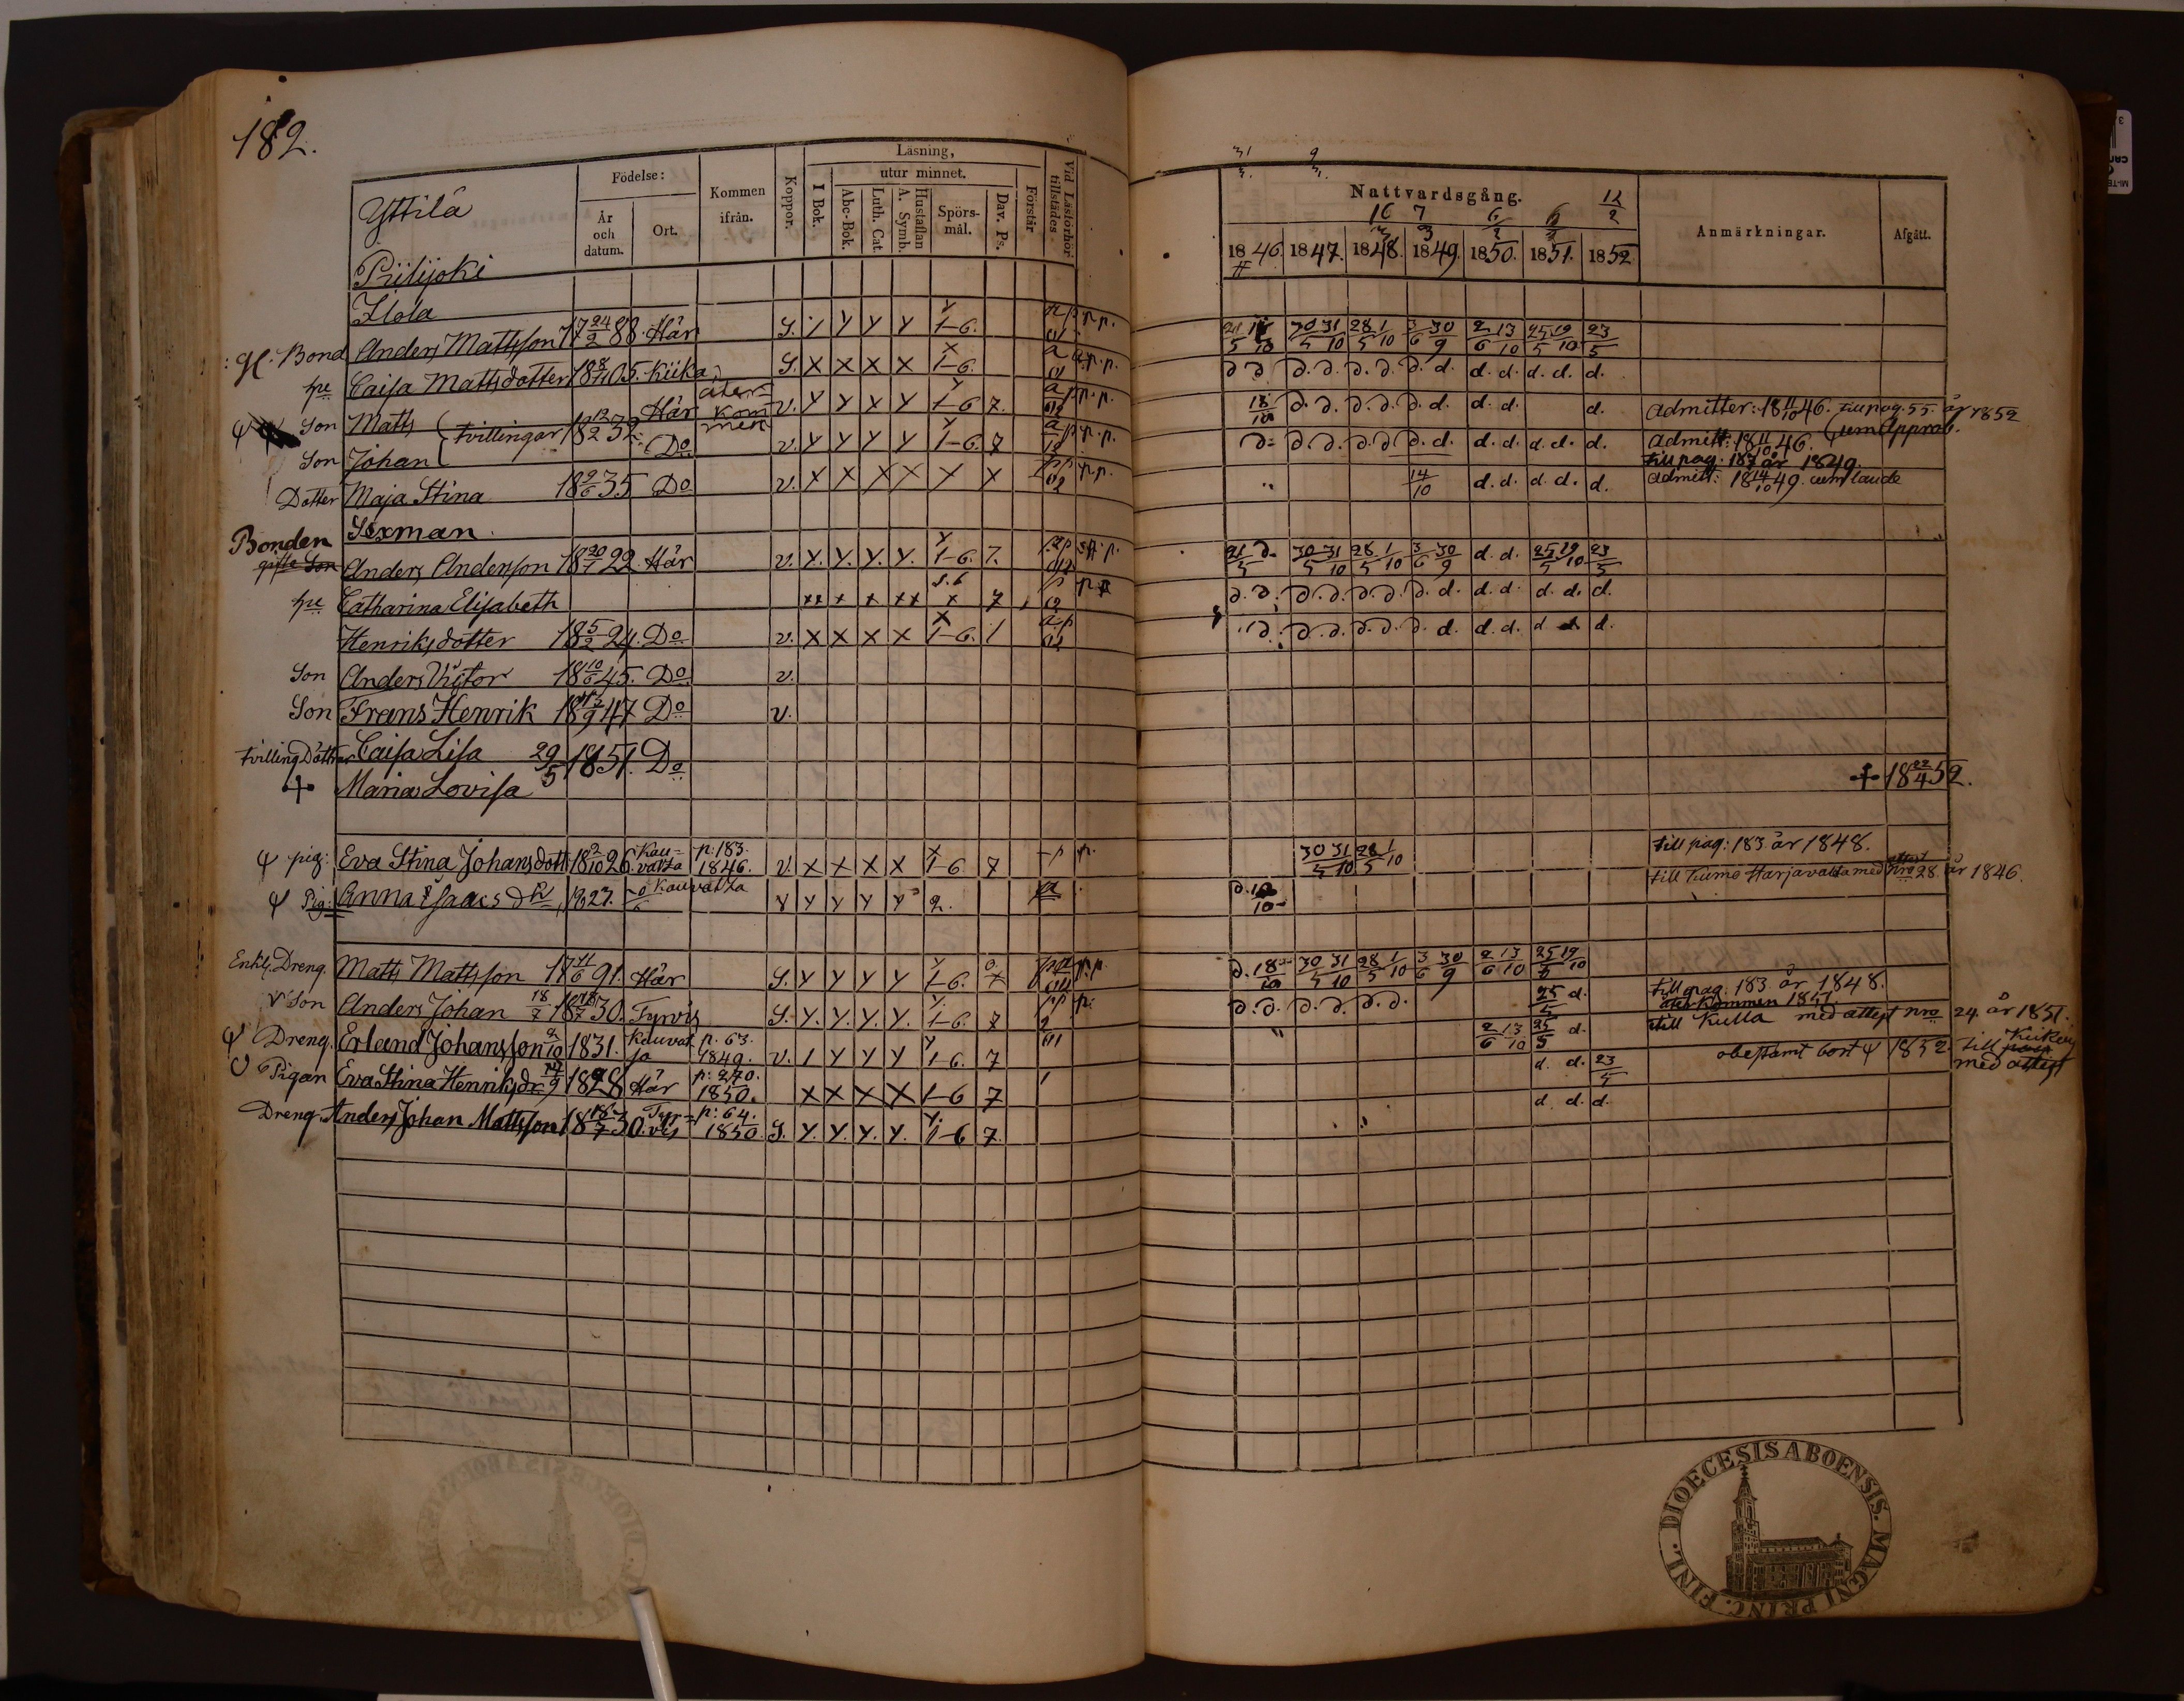 182.
Yttilä
Födelse:
År och datum.
Ort.
Kommen ifrån.
Koppor.
Läsning,
I Bok.
utur minnet.
Abc-Bok.
Luth. Cat.
Hustaflan A. Symb.
Spörsmål.
Dav. Ps.
Förstår
Vid Läsförhör tillstädes
Nattvardsgång.
16/3 7/3 6/2 6/2 12/2
1846. 1847. 1848. 1849. 1850. 1851. 1852.
Anmärkningar.
Afgått.
Piilijoki
Ilola
Gl. Bond Anders Mattsson 17 24/2 88. Här S. y y y y 1-6. 30 31/5 10 28 1/5 10 3 30/6 9 2 13/6 10 25 19/5 10 23/5
hu Caisa Mattsdotter 18 05. Kiika S. x x x x 1-6. d. d. d. d. d. d. d. d. d. d. d.
Son Matts { tvillingar 18 12/2 32. Här återkommen v. y y x y 1-6 7. 18/10 d. d. d. d. d. d. d. d. d. admitter: 18 11/10 46. till pag. 55. år 1852
Son Johan Do v. y y y y 1-6. 7 d. d. d. d. d. d. d. d. d. d. d. admitt: 18 11/10 46. cum Approb.
till pag. 187 år 1849.
Dotter Maja Stina 18 2/6 35 Do v. x x x x x x 14/10 d. d. d. d. d. admitt: 18 14/10 49. cum laude
Sexman.
Bonden gifte Son Anders Andersson 18 20/1 22. Här v. y. y. y. y. 1-6. 7. 21/5 d. 30 31/5 10 28 1/5 10 3 30/6 9 d. d. 25 19/5 10 23/5
hu Catharina Elisabeth 7 d. d. d. d. d. d. d. d. d. d. d. d. d.
Henriksdotter 18 5/2 24. Do v. x x x x 1-6. d. d. d. d. d. d. d. d. d. d. d.
Son Anders Victor 18 10/6 45. Do v.
Son Frans Henrik 18 47 Do v.
tvilling Döttrar Caisa Lisa 29/5 1851. Do
+ Maria Lovisa + 18 22/4 52.
pig: Eva Stina Johansdott: 18 2/10 26. Kauvatza p: 183. 1846. v. x x x x 1-6 7 30 31/5 10 28 1/5 10 till pag: 183 år 1848.
Pig: Anna Isaacs dr 1827. Kauvatza y y y y y 2. till Cumo Harjavalta med attest Nro 28. år 1846.
Enkl. Dreng. Matts Mattsson 17 11/6 91. Här S. y y y y 1-6. 7 d. 18/10 30 31/5 10 28 1/5 10 3 30/6 9 2 13/6 10 25 19/5 10
Son Anders Johan 18/7 1830. Tyrvis S. y. y. y. y. 1-6 7 d. d. d. d. d. d. 25/5 d. till pag. 183 år 1848.
återkommen 1851.
Dreng. Erland Johansson 2/10 1831. Kauvatsa p. 63. 1849. v. 1 y y y 1-6. 7 2 13/6 10 25/5 d. till Kulla med attest nro 24. år 1851.
Pigan Eva Stina Henriksdr 1828 Här p: 270. 1850. x x x x 1-6 7 d. d. 23/5 obestämt bort 1852 till Kiikois med attest
Dreng Anders Johan Mattsson 18 18/7 30. Tyrvis p: 64. 1850. S. y. y. y. y. 1-6 7. d. d. d.
DIOECESIS ABOENSIS. MAGNI PRINC. FINL.